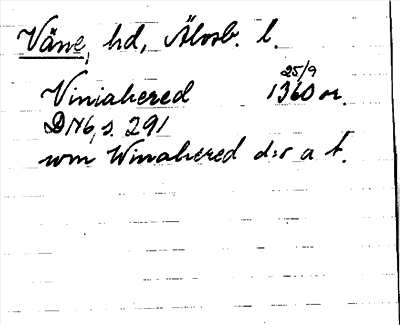 Väne, hd, Älvsb. l.
25/9
Viniahered 1360 or.
DN6, s. 291
wm Winahered d:s a t.